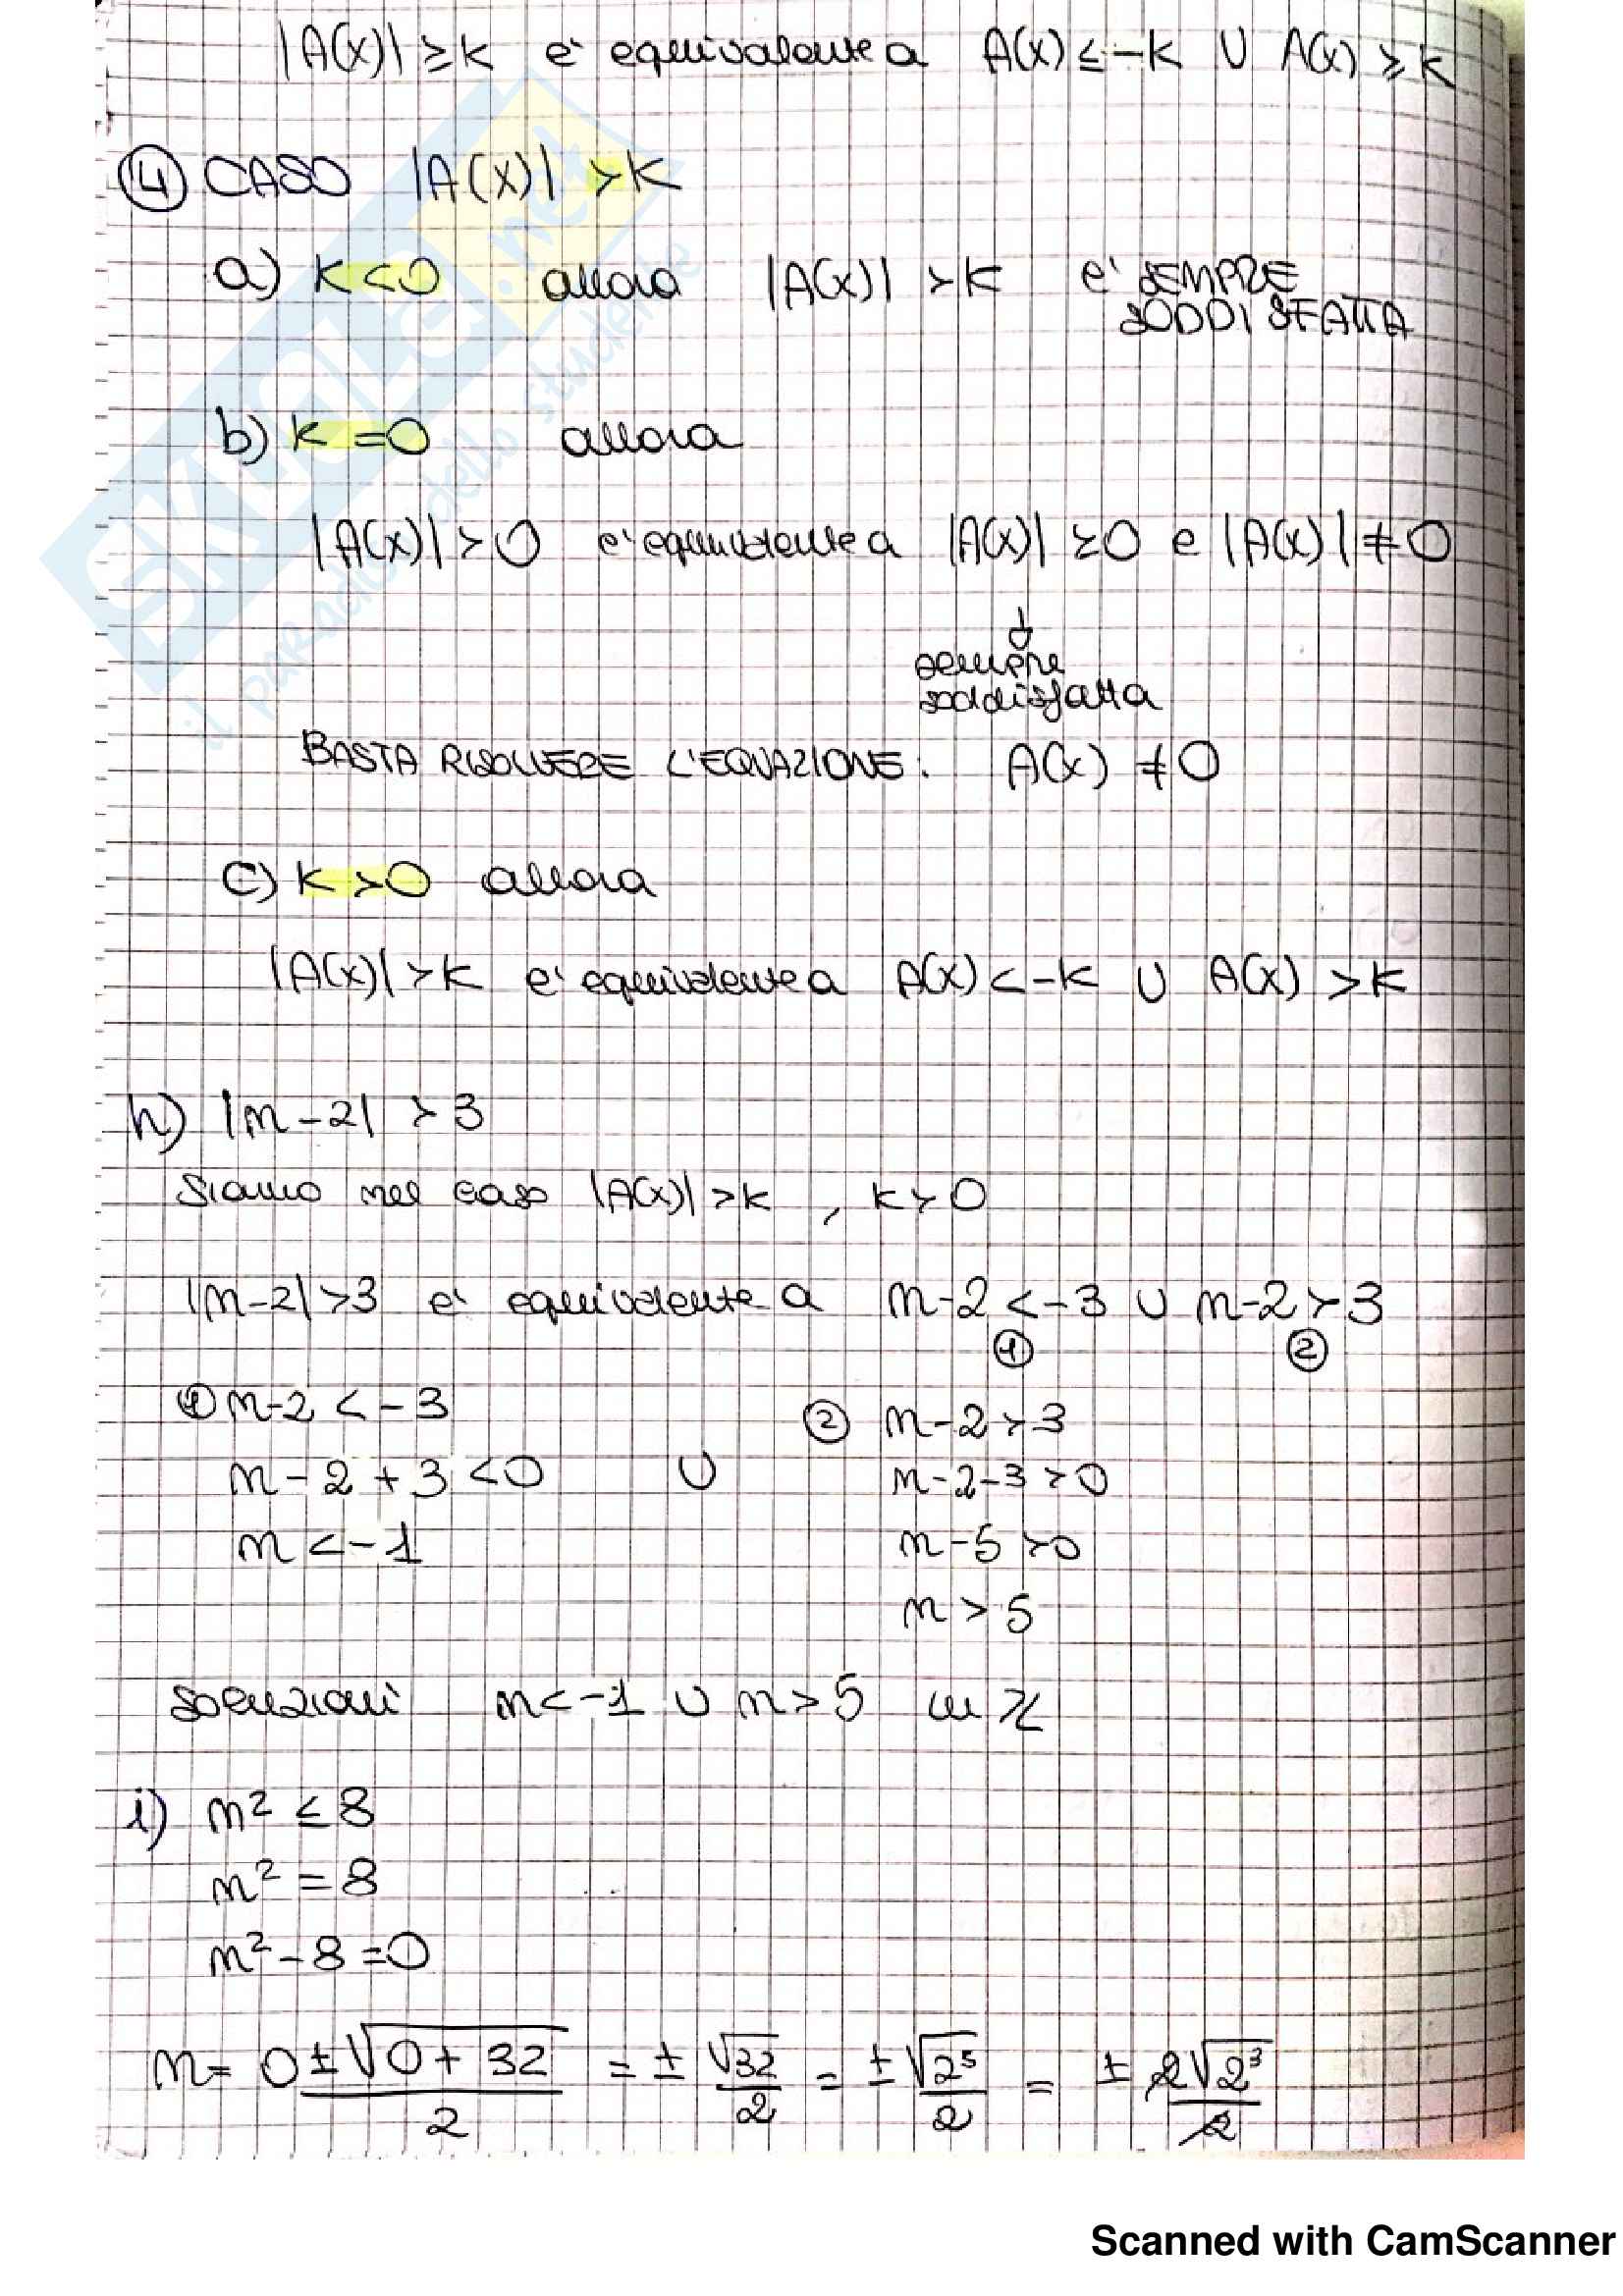 |A(x)| ≥ k e' equivalente a A(x) ≤ -k ∪ A(x) ≥ k
④ CASO |A(x)| > k
a) k < 0 allora |A(x)| > k e' SEMPRE
SODDISFATTA
b) k = 0 allora
|A(x)| > 0 e' equivalente a |A(x)| ≥ 0 e |A(x)| ≠ 0
↓
sempre
soddisfatta
BASTA RISOLVERE L'EQUAZIONE: A(x) ≠ 0
c) k > 0 allora
|A(x)| > k e' equivalente a A(x) < -k ∪ A(x) > k
h) |m-2| > 3
Siamo nel caso |A(x)| > k, k > 0
|m-2| > 3 e' equivalente a m-2 < -3 ∪ m-2 > 3
① ②
① m-2 < -3 ② m-2 > 3
m-2+3 < 0 ∪ m-2-3 > 0
m < -1 m-5 > 0
m > 5
soluzioni m < -1 ∪ m > 5 in ℤ
i) m² ≤ 8
m² = 8
m² - 8 = 0
m = 0 ± √(0+32) / 2 = ± √32 / 2 = ± √2⁵ / 2 = ± 2√2³ / 2
SKUOLA.net
il paradiso dello studente
Scanned with CamScanner